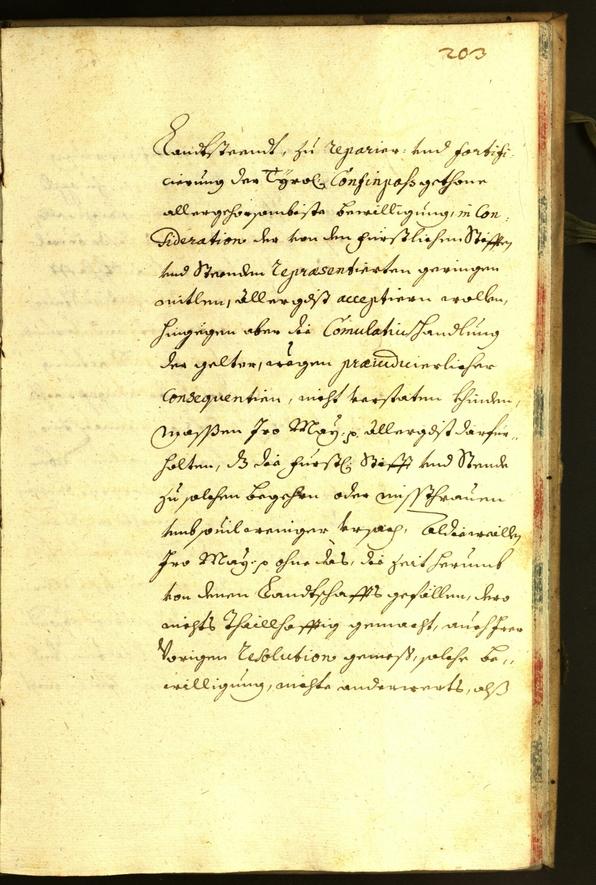 203
Landtsteendt, zu reparier: und fortifi-
cierung der Tyrol. Confinpass gethone
allergehorsambiste bewilligung, in Con-
sideration der von den fürstlichen Stifften
und Steenden repraesentierten geringen
mitlen, allergdist acceptiern wollen,
hingegen aber die Comulativ handlung
der gelter, wegen praeiudicierlicher
Consequentien, nicht verstaten khinden,
massen Iro May: p. allergdist darfür
halten, dz die fürstl. Stifft und Stende
zu solchen begehrn oder missthrauen
umb souil weniger ursach, Aldieweillen
Iro May: p ohne das, die zeit herumb
von denen Landtschaffts gefällen, dero
nichts thaillhafftig gemacht, auch Irer
vorigen Resolution gemess, solche be-
willigung, nichts anderwerts, alss